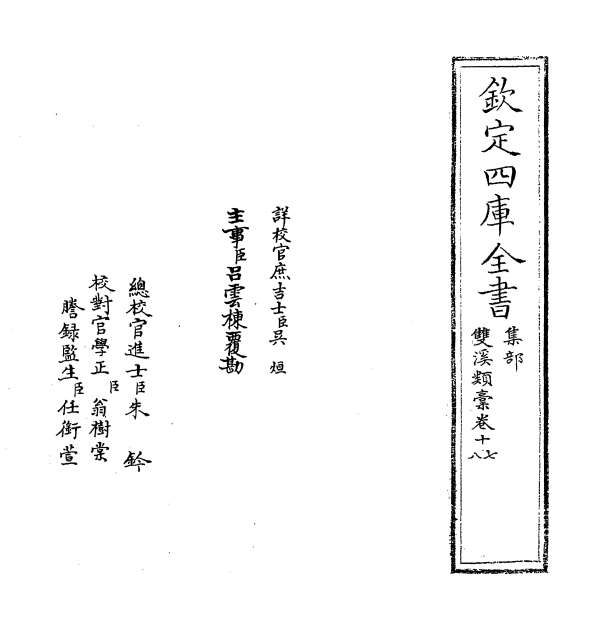 欽定四庫全書
集部
雙溪類藁卷十七八
詳校官庶吉士臣吳烜
主事臣呂雲棟覆勘
總校官進士臣朱鈐
校對官學正臣翁樹棠
謄錄監生臣任銜萱